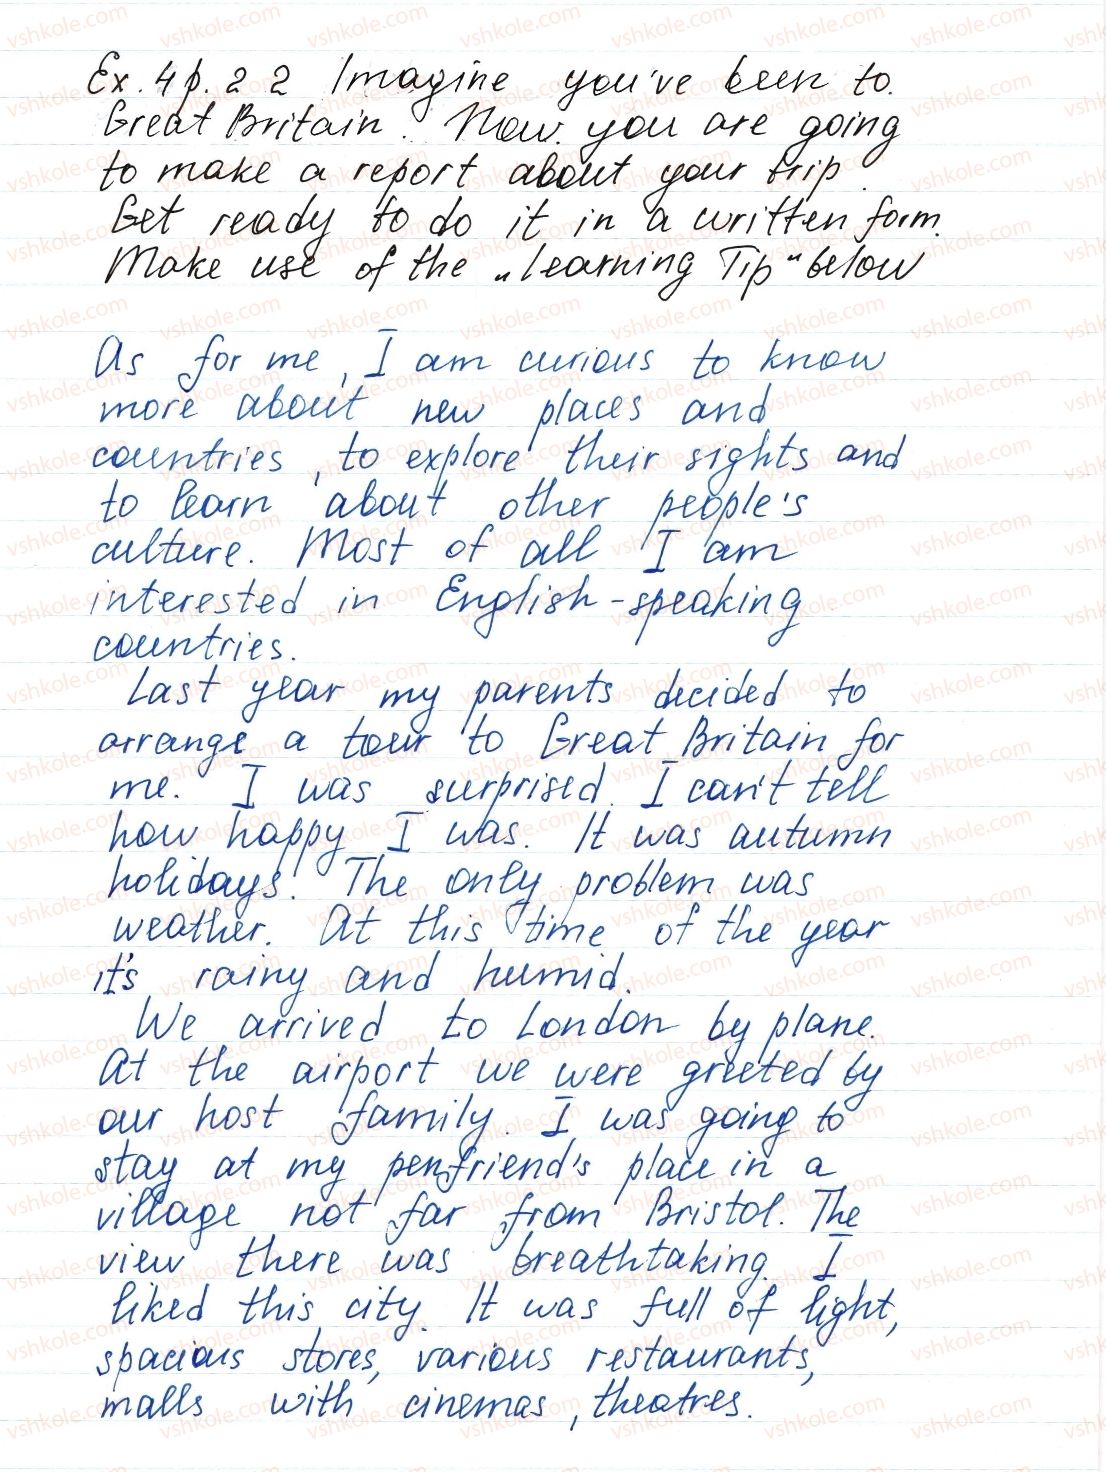 Ex. 4 p. 22 Imagine you've been to.
Great Britain. Now you are going
to make a report about your trip.
Get ready to do it in a written form.
Make use of the „Learning Tip" below
As for me, I am curious to know
more about new places and
countries, to explore their sights and
to learn about other people's
culture. Most of all I am
interested in English-speaking
countries.
Last year my parents decided to
arrange a tour to Great Britain for
me. I was surprised. I can't tell
how happy I was. It was autumn
holidays. The only problem was
weather. At this time of the year
it's rainy and humid.
We arrived to London by plane.
At the airport we were greeted by
our host family. I was going to
stay at my penfriend's place in a
village not far from Bristol. The
view there was breathtaking. I
liked this city. It was full of light,
spacious stores, various restaurants,
malls with cinemas, theatres.
vshkole.com